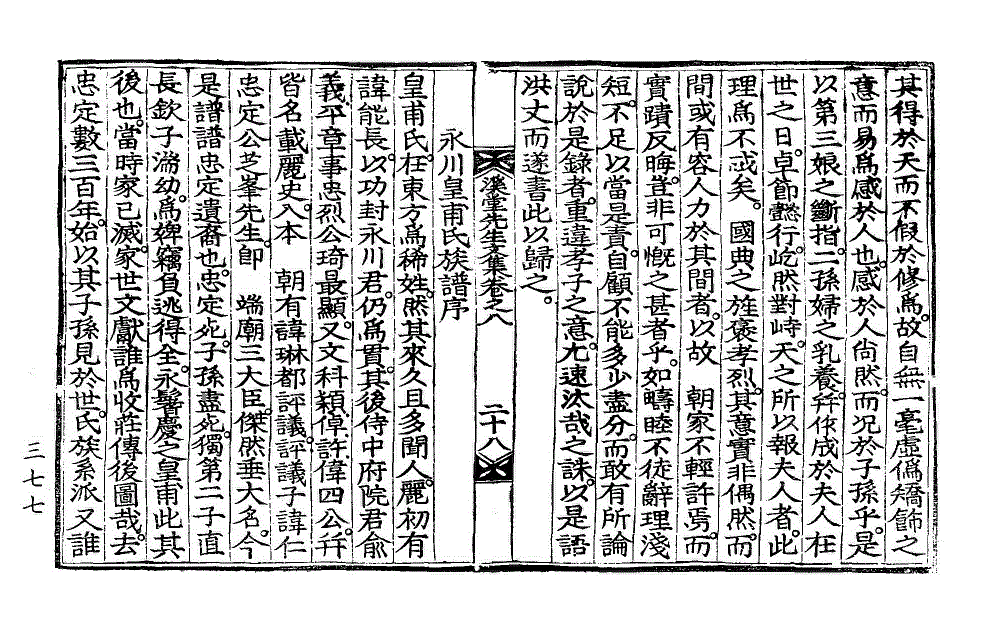 其得於天而不假於修爲。故自無一毫虛僞矯飾之
意而易爲感於人也。感於人尙然。而况於子孫乎。是
以第三娘之斷指。二孫婦之乳養。幷作成於夫人在
世之日。卓節懿行。屹然對峙。天之所以報夫人者。此
理爲不忒矣。 國典之旌褒孝烈。其意實非偶然。而
間或有容人力於其間者。以故 朝家不輕許焉。而
實蹟反晦。豈非可慨之甚者乎。如疇睦不徒辭理淺
短。不足以當是責。自顧不能多少盡分。而敢有所論
說於是錄者。重違孝子之意。尤速汰哉之誅。以是語
洪丈而遂書此以歸之。
溪堂先生文集卷之八
二十八
永川皇甫氏族譜序
皇甫氏在東方爲稀姓。然其來久且多聞人。麗初有
諱能長。以功封永川君。仍爲貫。其後侍中府院君兪
義。平章事忠烈公琦最顯。又文科穎,倬,許,偉四公。幷
皆名載麗史。入本 朝有諱琳都評議。評議子諱仁
忠定公芝峯先生。卽 端廟三大臣。傑然垂大名。今
是譜譜忠定遺裔也。忠定死。子孫盡死。獨第二子直
長欽子湍幼。爲婢竊負逃得全。永鬐慶之皇甫此其
後也。當時家已滅。家世文獻。誰爲收莊傳後圖哉。去
忠定數三百年。始以其子孫見於世。氏族系派又誰
三七七